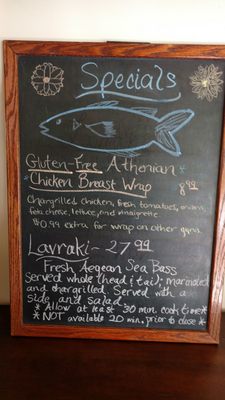 Specials
Gluten-Free Athonian
*Chicken Breast Wrap 8.99
Chargrilled chicken, fresh tomatoes, onions,
feta cheese, lettuce, and vinaigrette
$0.99 extra for wrap on other
Lavraki - 27.99
Fresh Aegean Sea Bass
served whole (head & tail); marinated
and chargrilled. Served with a
side, and salad.
* Allow at least 30 min. cook time*
*NOT available 20 min. prior to close*